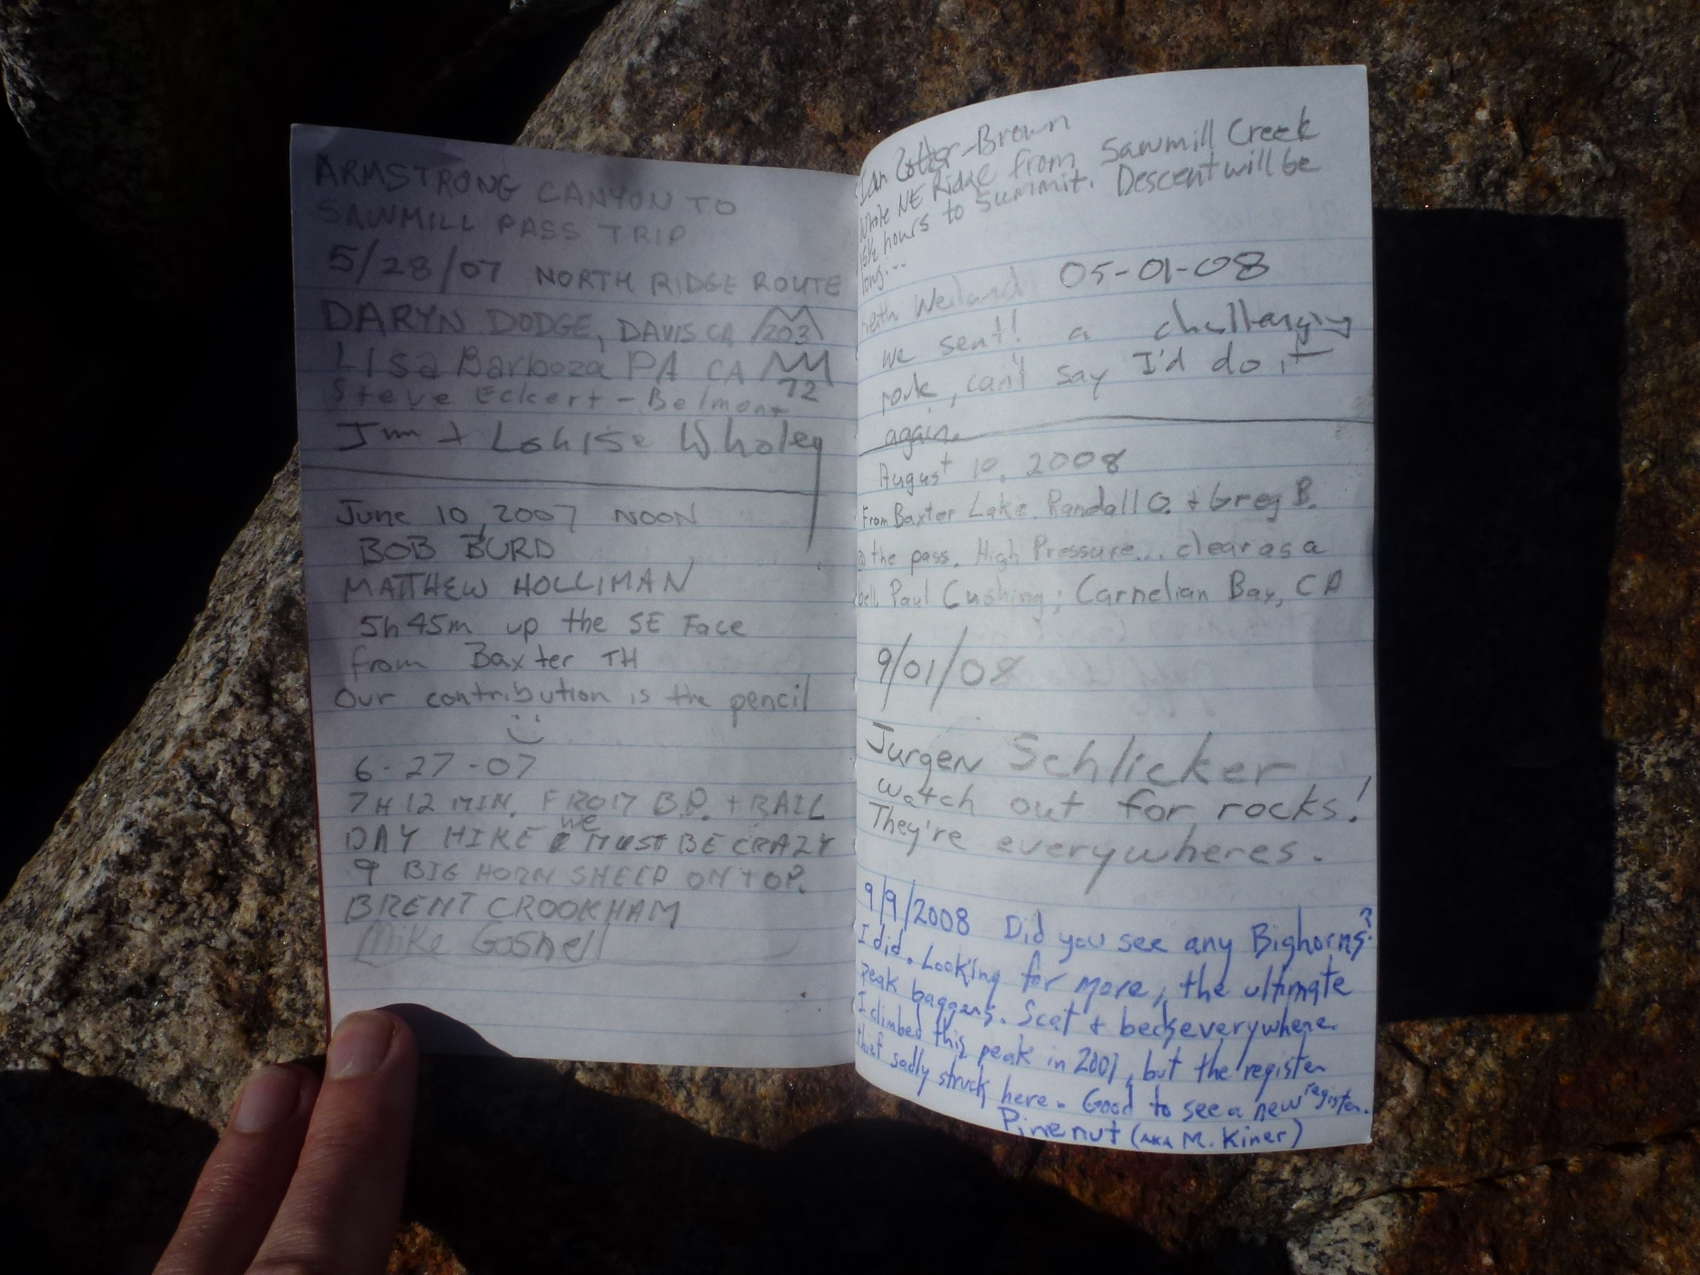 ARMSTRONG CANYON TO
SAWMILL PASS TRIP
5/28/07 NORTH RIDGE ROUTE
DARYN DODGE, DAVIS CA 203
Lisa Barboza PA CA
72
Steve Eckert - Belmont
Jim + Louise Wholey
June 10, 2007 NOON
BOB BURD
MATTHEW HOLLIMAN
5h 45m up the SE Face
from Baxter TH
Our contribution is the pencil
6-27-07
7H 12 MIN. FROM B.P. + RAIL
we
DAY HIKE MUST BE CRAZY
9 BIG HORN SHEEP ON TOP.
BRENT CROOKHAM
Mike Gosnell
Ian Cotter-Brown
Whole NE Ridge from Sawmill Creek
hours to summit. Descent will be
long...
Weiland 05-01-08
we sent! a challenging
, can't say I'd do it
again.
August 10, 2008
From Baxter Lake. Randall O. + Greg B.
@ the pass. High Pressure... clear as a
bell. Paul Cushing; Carnelian Bay, CA
9/01/08
Jurgen Schlicker
watch out for rocks!
They're everywheres.
9/9/2008 Did you see any Bighorns?
I did. Looking for more, the ultimate
peak baggers. Scat + beds everywhere.
I climbed this peak in 2001, but the register
thief sadly struck here. Good to see a new register.
Pinenut (AKA M. Kiner)